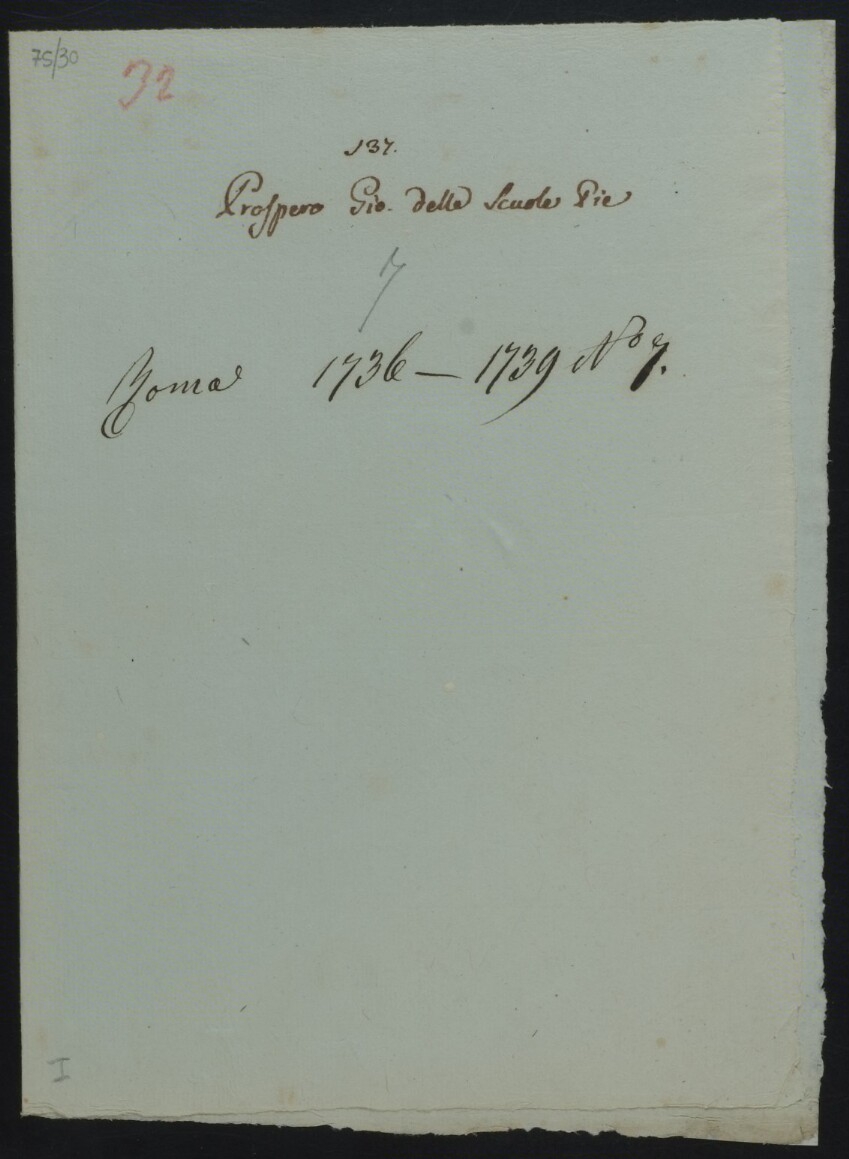 75/30
32
137.
Prospero Gio. delle Scuole Pie
7
Roma 1736 — 1739 No 7.
I